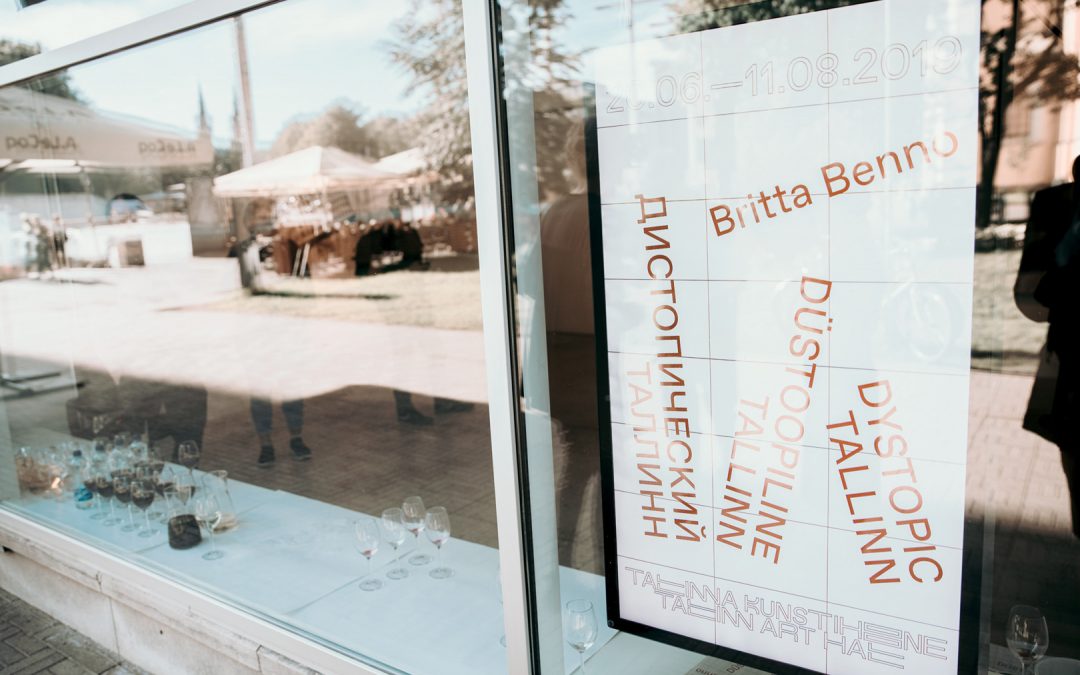 A.LeCoq
A.LeCoq
—11.08.2019
Britta Benno
ДИСТОПИЧЕСКИЙ
ТАЛЛИНН
DÜSTOOPILINE
TALLINN
DYSTOPIC
TALLINN
TALLINNA KUNSTIHOONE
TALLINN ART HALL